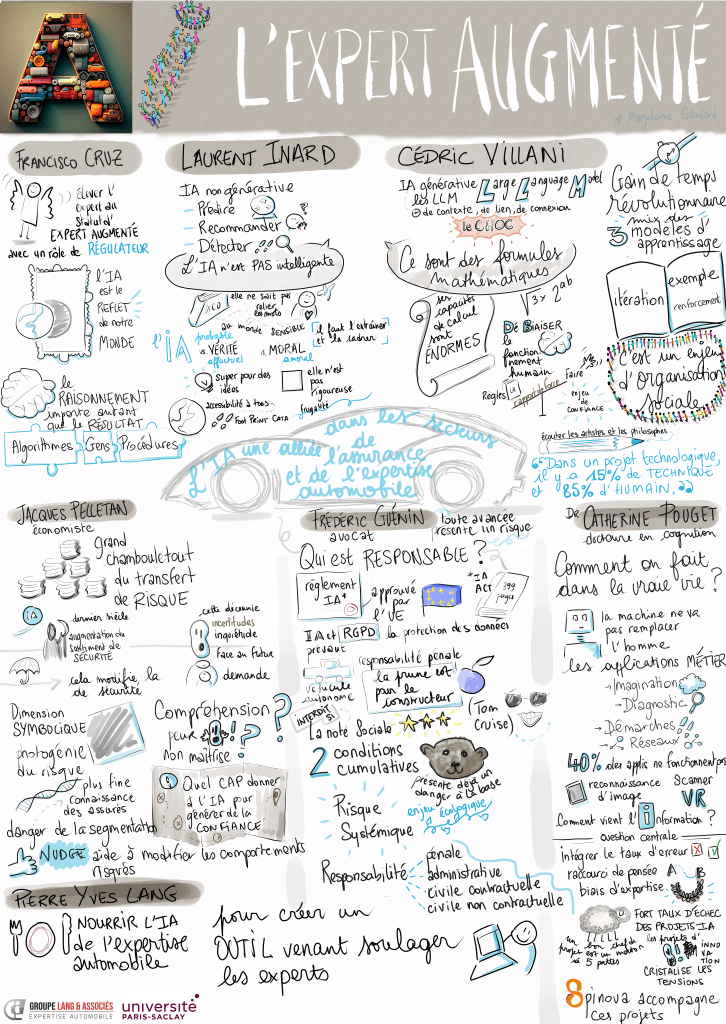 L'EXPERT AUGMENTÉ
* Marjolaine Gaudard
FRANCISCO CRUZ
élever l'
expert au
statut d'
EXPERT AUGMENTÉ
avec un rôle de RÉGULATEUR
l'IA
est le
REFLET
de notre
MONDE
le
RAISONNEMENT
importe autant
que le RÉSULTAT
Algorithmes
Gens
Procédures
LAURENT INARD
IA non générative
- Prédire
- Recommander
?
- Détecter
L'IA n'est PAS intelligente
elle ne sait pas
relier
les mots
au monde SENSIBLE
il faut l'entraîner
et la cadrer
l'IA
probable
vs. VÉRITÉ
affectuel
vs. MORAL
amoral
super pour des
idées
elle n'est
pas
rigoureuse
accessibilité à tous
frugalité
FOOT PRINT DATA
CÉDRIC VILLANI
IA générative
Large Language Model
les LLM
de contexte, de lien, de connexion
le CHOC
Ce sont des formules
mathématiques
ses
capacités
de calcul
sont
ENORMES
√3x 2ab
DÉBIAISER
le
fonction-
nement
humain
Règles
IA
rapport de force
faire
enjeu
de
confiance
Gain de temps
révolutionnaire
mix des
3 modèles
d'apprentissage
itération
exemple
renforcement
c'est un enjeu
d'organisation
sociale
écouter les artistes et les philosophes
“Dans un projet technologique,
il y a 15% de TECHNIQUE
et 85% d'HUMAIN.”
dans les secteurs
L'IA une alliée de
l'assurance
et de l'expertise
automobile
JACQUES PELLETAN
économiste
grand
chamboule tout
du transfert
de RISQUE
IA
dernier siècle
augmentation du
sentiment de
SÉCURITÉ
cette décennie
incertitudes
inquiétude
face au futur
cela modifie, la demande
de sécurité
Dimension
SYMBOLIQUE
photogénie
du risque
Compréhension ?
peur
non maîtrise
!??
plus fine
connaissance
des assurés
danger de la segmentation
Quel CAP donner
à l'IA pour
générer de la
CONFIANCE
NUDGE aide à modifier les comportements
risqués
FRÉDÉRIC GUÉNIN
avocat
toute avancée
présente un risque
Qui est RESPONSABLE ?
règlement
IA*
approuvé
par
l'UE
*IA
ACT
399
pages
IA et RGPD la protection des données
prévaut
véhicule
autonome
responsabilité pénale
la prune est
pour le
constructeur
INTERDIT
SI
La note Sociale
(Tom
Cruise)
2 conditions
cumulatives
présente déjà un
danger à la base
enjeu écologique
Risque
Systémique
Responsabilité
pénale
administrative
civile contractuelle
civile non contractuelle
DR CATHERINE POUGET
docteure en cognition
Comment on fait
dans la vraie vie ?
la machine ne va
pas remplacer
l'homme
les applications MÉTIER
→ Imagination
→ Diagnostic
→ Démarches
→ Réseaux
40% des applic ne fonctionnent pas
reconnaissance
d'image
Scamer
VR
Comment vient l'information ?
question centrale
Intégrer le taux d'erreur
raccourci de pensée
A B
biais d'expertise
FORT TAUX D'ÉCHEC
DES PROJETS IA
un bon chef de
projet est un mouton
à 5 pattes
les projets d'
INNO
VA
TION
CRISTALISE LES
TENSIONS
8pinova accompagne
ces projets
PIERRE YVES LANG
NOURRIR L'IA
de l'expertise
automobile
pour créer un
OUTIL venant soulager
les experts
GROUPE LANG & ASSOCIÉS
EXPERTISE AUTOMOBILE
université
PARIS-SACLAY